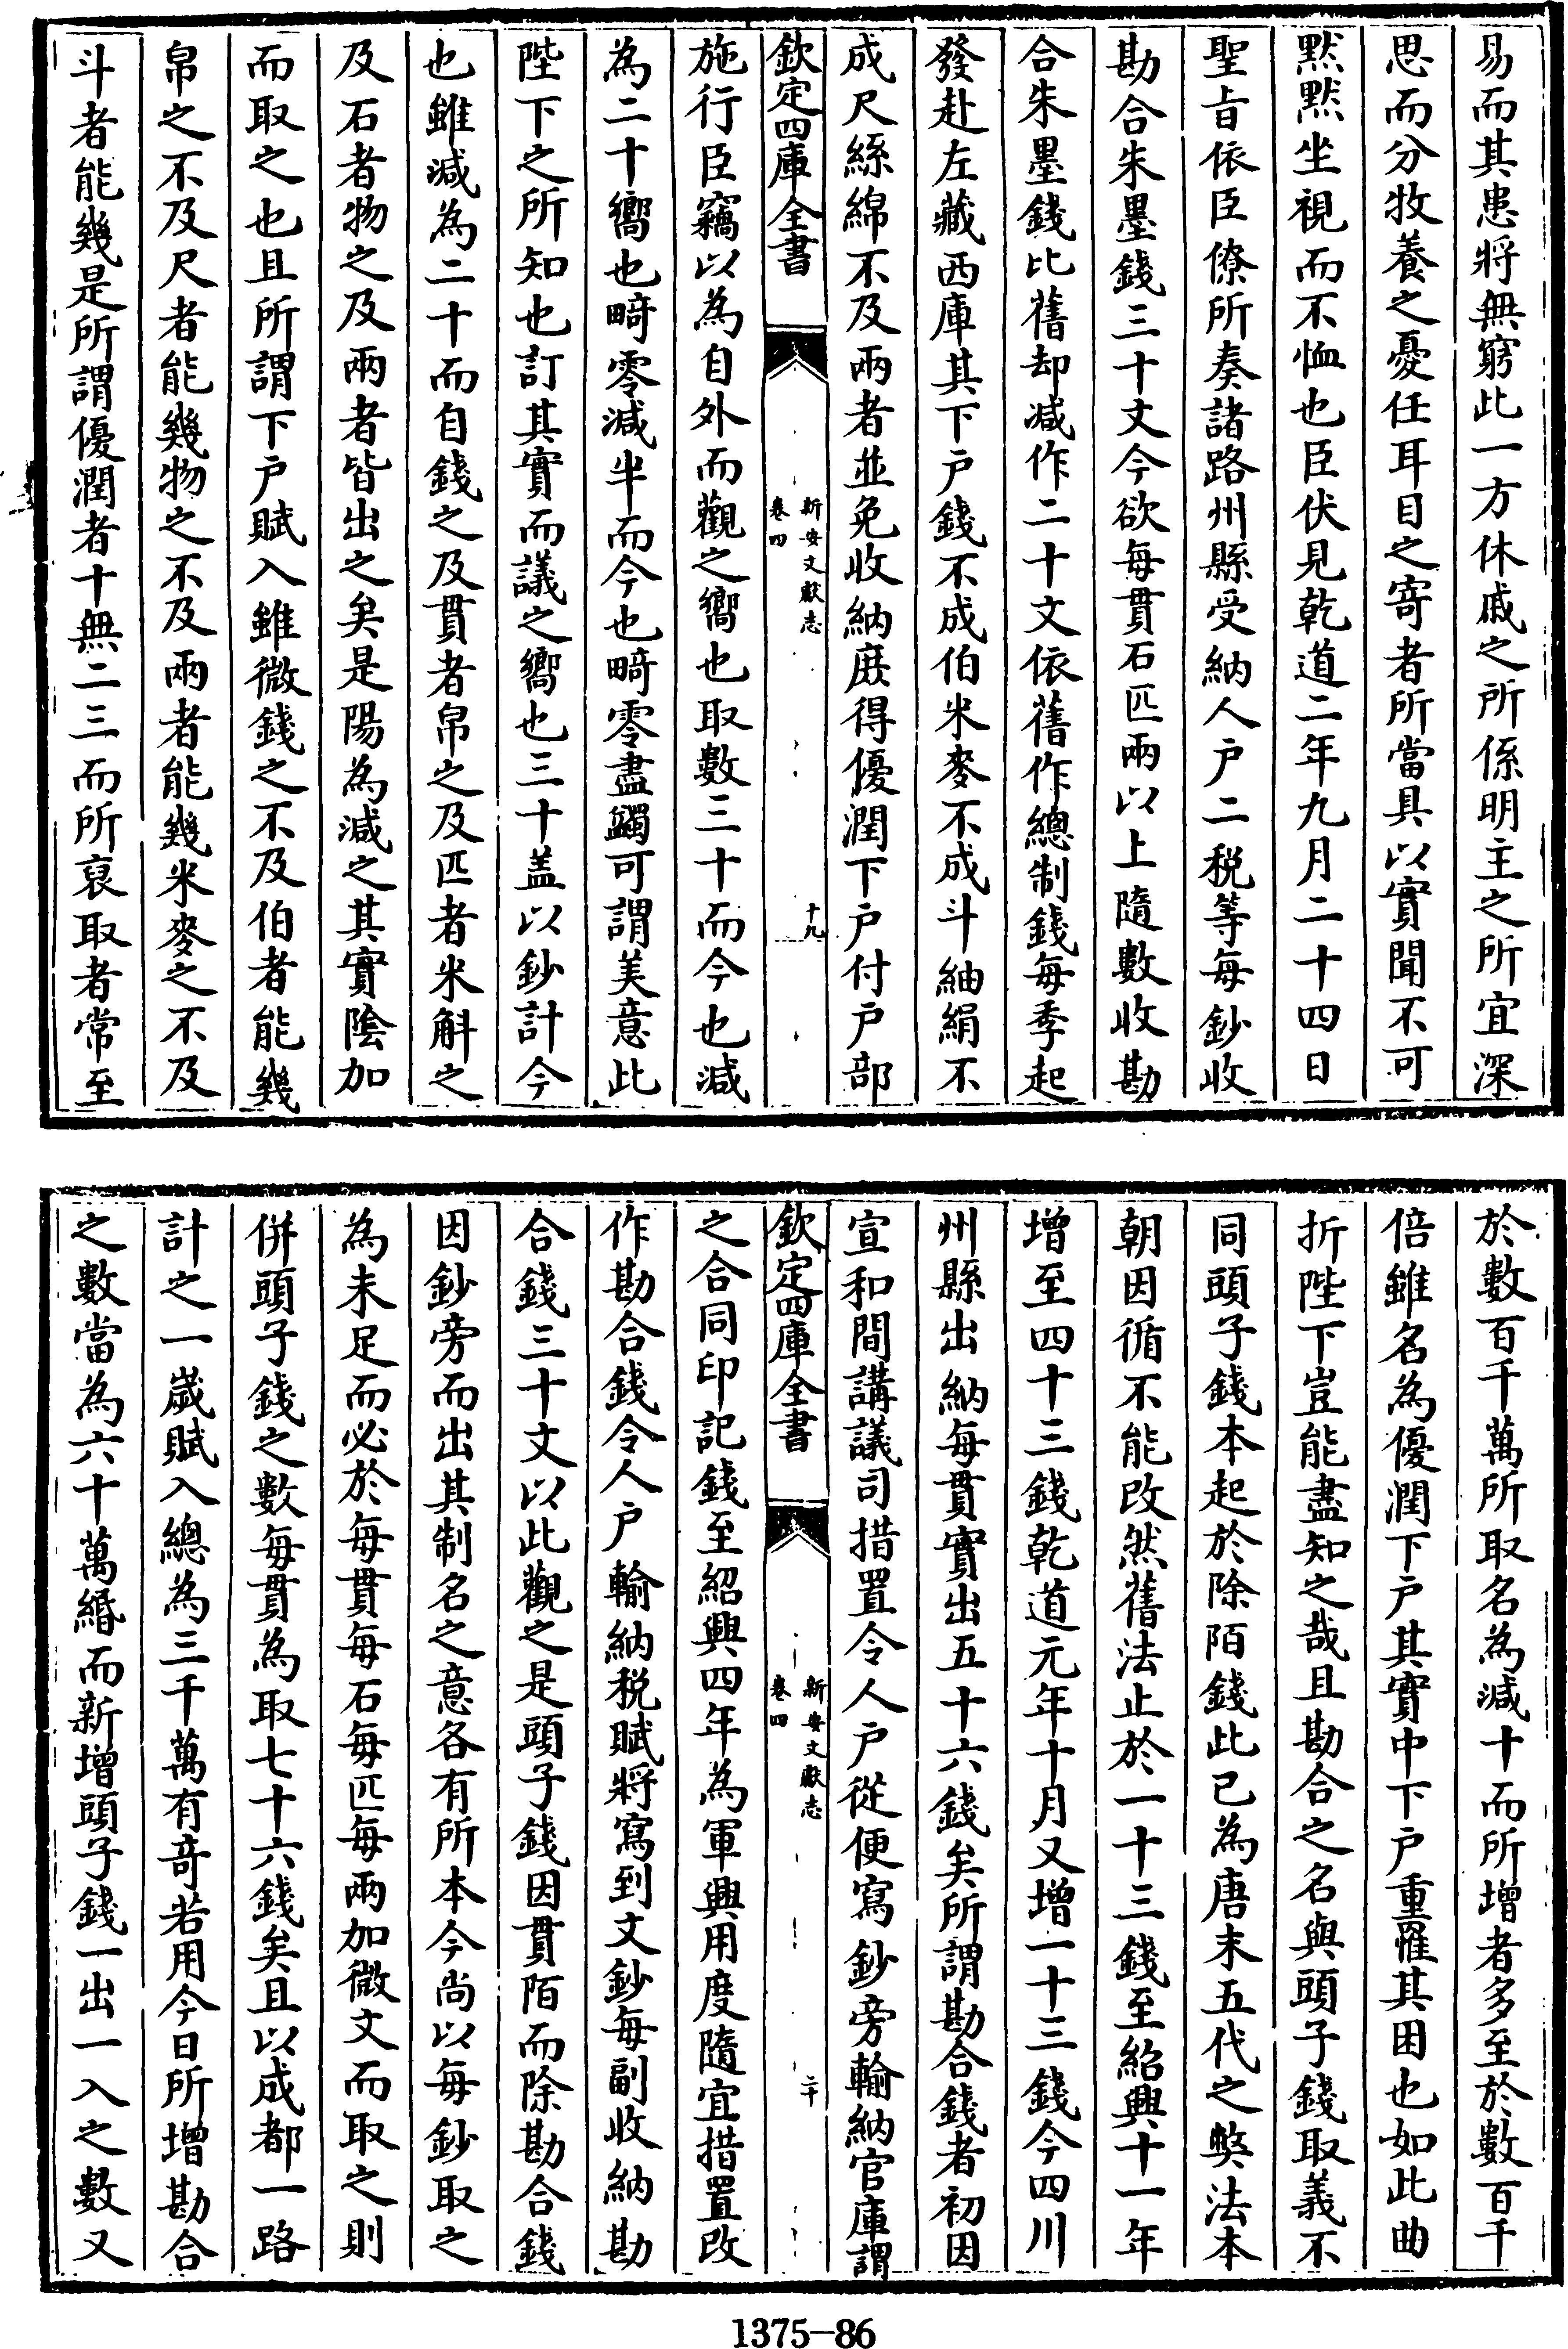 易而其患將無窮此一方休戚之所係明主之所宜深
思而分牧養之憂任耳目之寄者所當具以實聞不可
默默坐視而不恤也臣伏見乾道二年九月二十四日
聖㫖依臣僚所奏諸路州縣受納人户二税等每鈔收
勘合朱墨錢三十文今欲每貫石匹兩以上隨數收勘
合朱墨錢比舊却减作二十文依舊作總制錢每季起
發赴左藏西庫其下户錢不成伯米麥不成斗紬絹不
成尺絲綿不及兩者並免收納庻得優潤下户付户部
欽定四庫全書
新安文獻志
卷四
十九
施行臣竊以為自外而觀之嚮也取數三十而今也減
為二十嚮也畸零減半而今也畸零盡蠲可謂美意此
陛下之所知也訂其實而議之嚮也三十盖以鈔計今
也雖減為二十而自錢之及貫者帛之及匹者米斛之
及石者物之及兩者皆出之矣是陽為減之其實隂加
而取之也且所謂下户賦入雖微錢之不及伯者能幾
帛之不及尺者能幾物之不及兩者能幾米麥之不及
斗者能幾是所謂優潤者十無二三而所裒取者常至
於數百千萬所取名為減十而所增者多至於數百千
倍雖名為優潤下户其實中下户重罹其困也如此曲
折陛下豈能盡知之哉且勘合之名與頭子錢取義不
同頭子錢本起於除陌錢此已為唐末五代之弊法本
朝因循不能改然舊法止於一十三錢至紹興十一年
增至四十三錢乾道元年十月又增一十三錢今四川
州縣出納每貫實出五十六錢矣所謂勘合錢者初因
宣和間講議司措置令人户從便寫鈔旁輸納官庫謂
欽定四庫全書
新安文獻志
卷四
二十
之合同印記錢至紹興四年為軍興用度隨宜措置改
作勘合錢令人户輸納税賦將寫到文鈔每副收納勘
合錢三十文以此觀之是頭子錢因貫陌而除勘合錢
因鈔旁而出其制名之意各有所本今尚以每鈔取之
為未足而必於每貫每石每匹每兩加微文而取之則
併頭子錢之數每貫為取七十六錢矣且以成都一路
計之一嵗賦入總為三千萬有竒若用今日所增勘合
之數當為六十萬緡而新增頭子錢一出一入之數又
1375-86